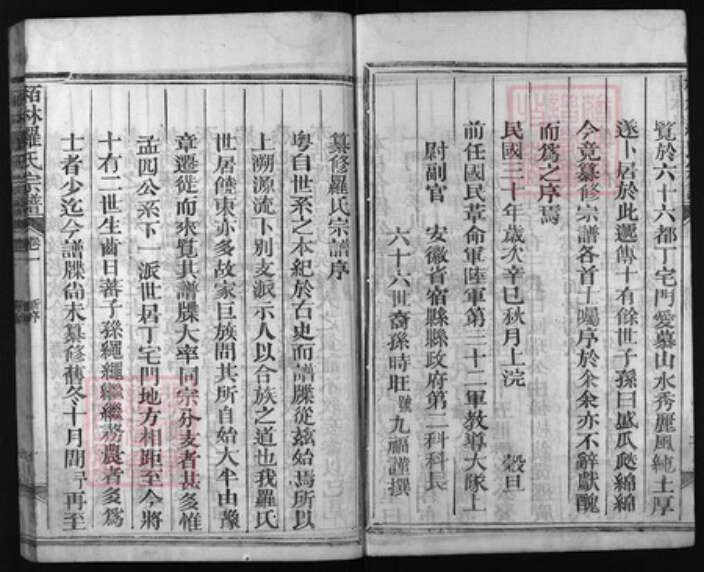 覽於六十六都丁宅門愛慕山水秀麗風純土厚
遂卜居於此遞傳十有餘世子孫日盛瓜瓞綿綿
今竟纂修宗譜各首士囑序於余余亦不辭獻醜
而爲之序焉
民國三十年歲次辛巳秋月上浣 穀旦
前任國民革命軍陸軍第三十二軍教導大隊上
尉副官 安徽省宿縣縣政府第二科科長
六十六世裔孫時旺號九福謹撰
纂修羅氏宗譜序
粵自世系之本紀於古史而譜牒從兹始焉所以
上溯源流下別支派示人以合族之道也我羅氏
世居饒東亦多故家巨族問其所自始大半由豫
章遷徙而來覽其譜牒大率同宗分支者甚多惟
孟四公系下一派世居丁宅門地方相距至今將
十有二世生齒日蕃子孫繩繩繼繼務農者多爲
士者少迄今譜牒尚未纂修舊冬十月間 再至
栢林羅氏宗譜 卷一